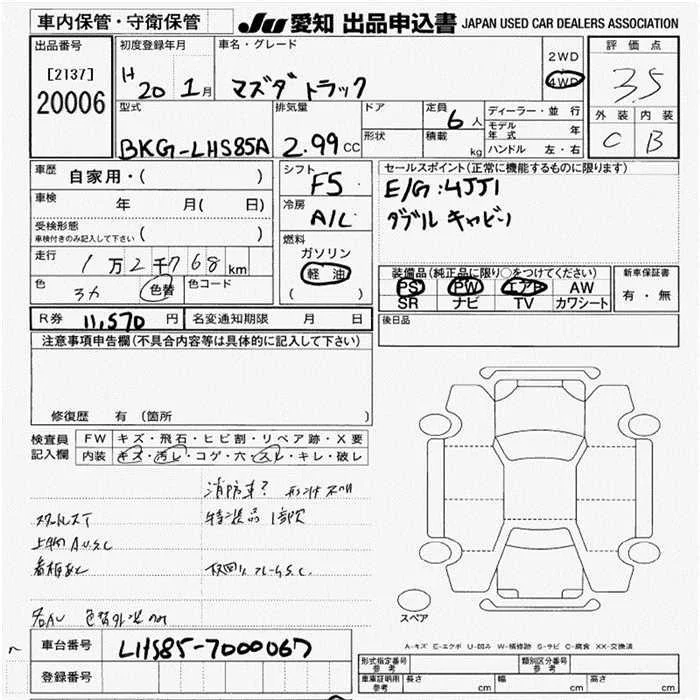 車内保管・守衛保管
JU 愛知 出品申込書 JAPAN USED CAR DEALERS ASSOCIATION
出品番号
[2137]
20006
初度登録年月
H 20 1月
車名・グレード
マズダ トラック
2WD
4WD
評価点
3.5
外装 内装
C B
型式
BKG-LHS85A
排気量
2.99 CC
ドア
形状
定員
6人
積載
kg
ディーラー・並行
モデル年式 年
ハンドル 左・右
車歴 自家用・( )
車検 年 月( 日)
受検形態
車検付きのみ記入して下さい ( )
走行 1万2千768 km
色 色替 色コード
シフト
F5
冷房
A/C
燃料
ガソリン
軽油
( )
セールスポイント(正常に機能するものに限ります)
E/G:4JJ1
ダブル キャビン
装備品(純正品に限り○をつけてください)
PS PW エアB AW
SR ナビ TV カワシート
新車保証書
有・無
R券 11,570 円 名変通知期限 月 日
後日品
注意事項申告欄(不具合内容等は具体的に記入して下さい)
修復歴 有 (箇所 )
検査員記入欄
FW キズ・飛石・ヒビ割・リペア跡・X要
内装 キズ・汚レ・コゲ・穴・スレ・キレ・破レ
消防車?
特装品 1部欠
看板あと
スペア
A-キズ E-エクボ U-凹み W-補修跡 S-サビ C-腐食 XX-交換済
車台番号 LHS85-7000067
登録番号
形式指定番号 参考
類別区分番号 参考
車庫証明用 参考 長さ cm 幅 cm 高さ cm